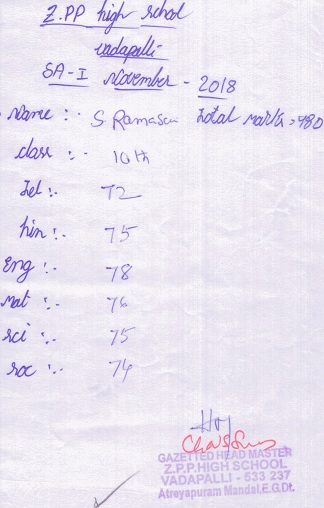 Z.PP high school
Vadapalli
SA-I November - 2018
Name :- S Ramasa Total marks 480
class :- 10th
Tel :- 72
hin :- 75
Eng :- 78
Mat :- 76
sci :- 75
soc :- 74
GAZETTED HEAD MASTER
Z.P.P.HIGH SCHOOL
VADAPALLI - 533 237
Atreyapuram Mandal, E.G.Dt.